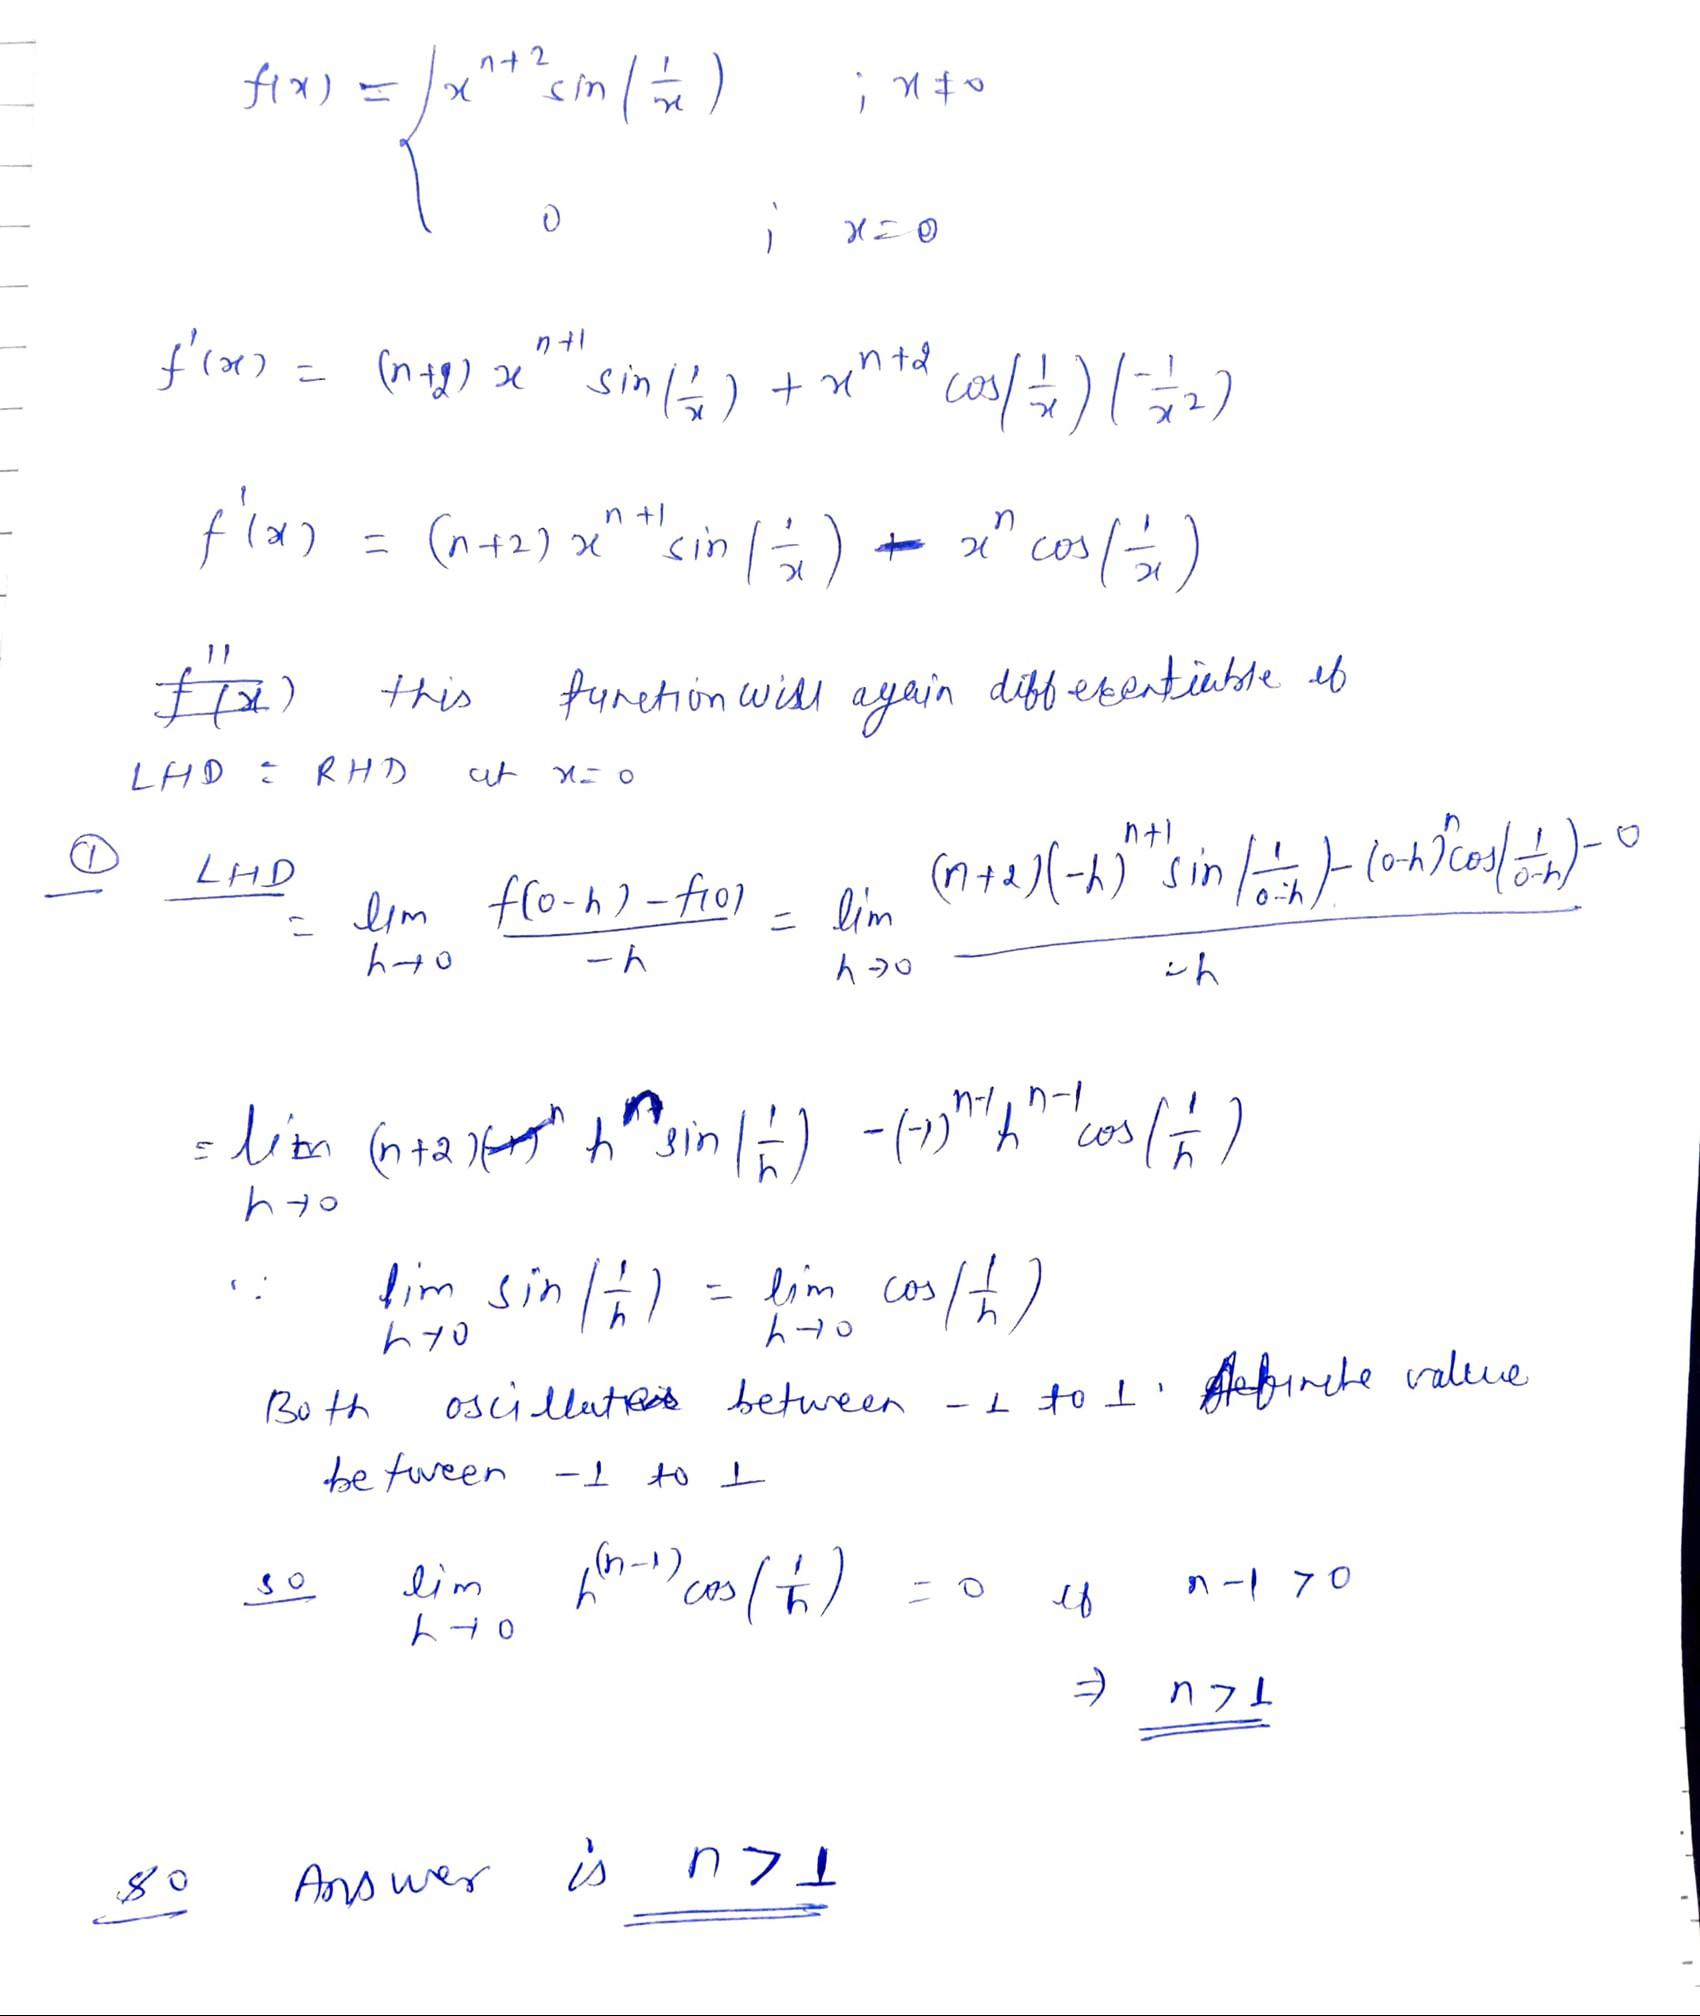 f(x) = { x^{n+2} sin(1/x) ; x≠0
0 ; x=0
f'(x) = (n+2) x^{n+1} sin(1/x) + x^{n+2} cos(1/x) (-1/x^2)
f'(x) = (n+2) x^{n+1} sin(1/x) - x^n cos(1/x)
this function will again differentiable if
LHD = RHD at x=0
① LHD = lim_{h→0} (f(0-h) - f(0))/(-h) = lim_{h→0} ((n+2)(-h)^{n+1} sin(1/(0-h)) - (0-h)^n cos(1/(0-h)) - 0)/(-h)
= lim_{h→0} (n+2) h^n sin(1/h) - (-1)^{n-1} h^{n-1} cos(1/h)
∵ lim_{h→0} sin(1/h) = lim_{h→0} cos(1/h)
Both oscillates between -1 to 1. definite value
between -1 to 1
so lim_{h→0} h^{(n-1)} cos(1/h) = 0 if n-1 > 0
⇒ n>1
so Answer is n>1